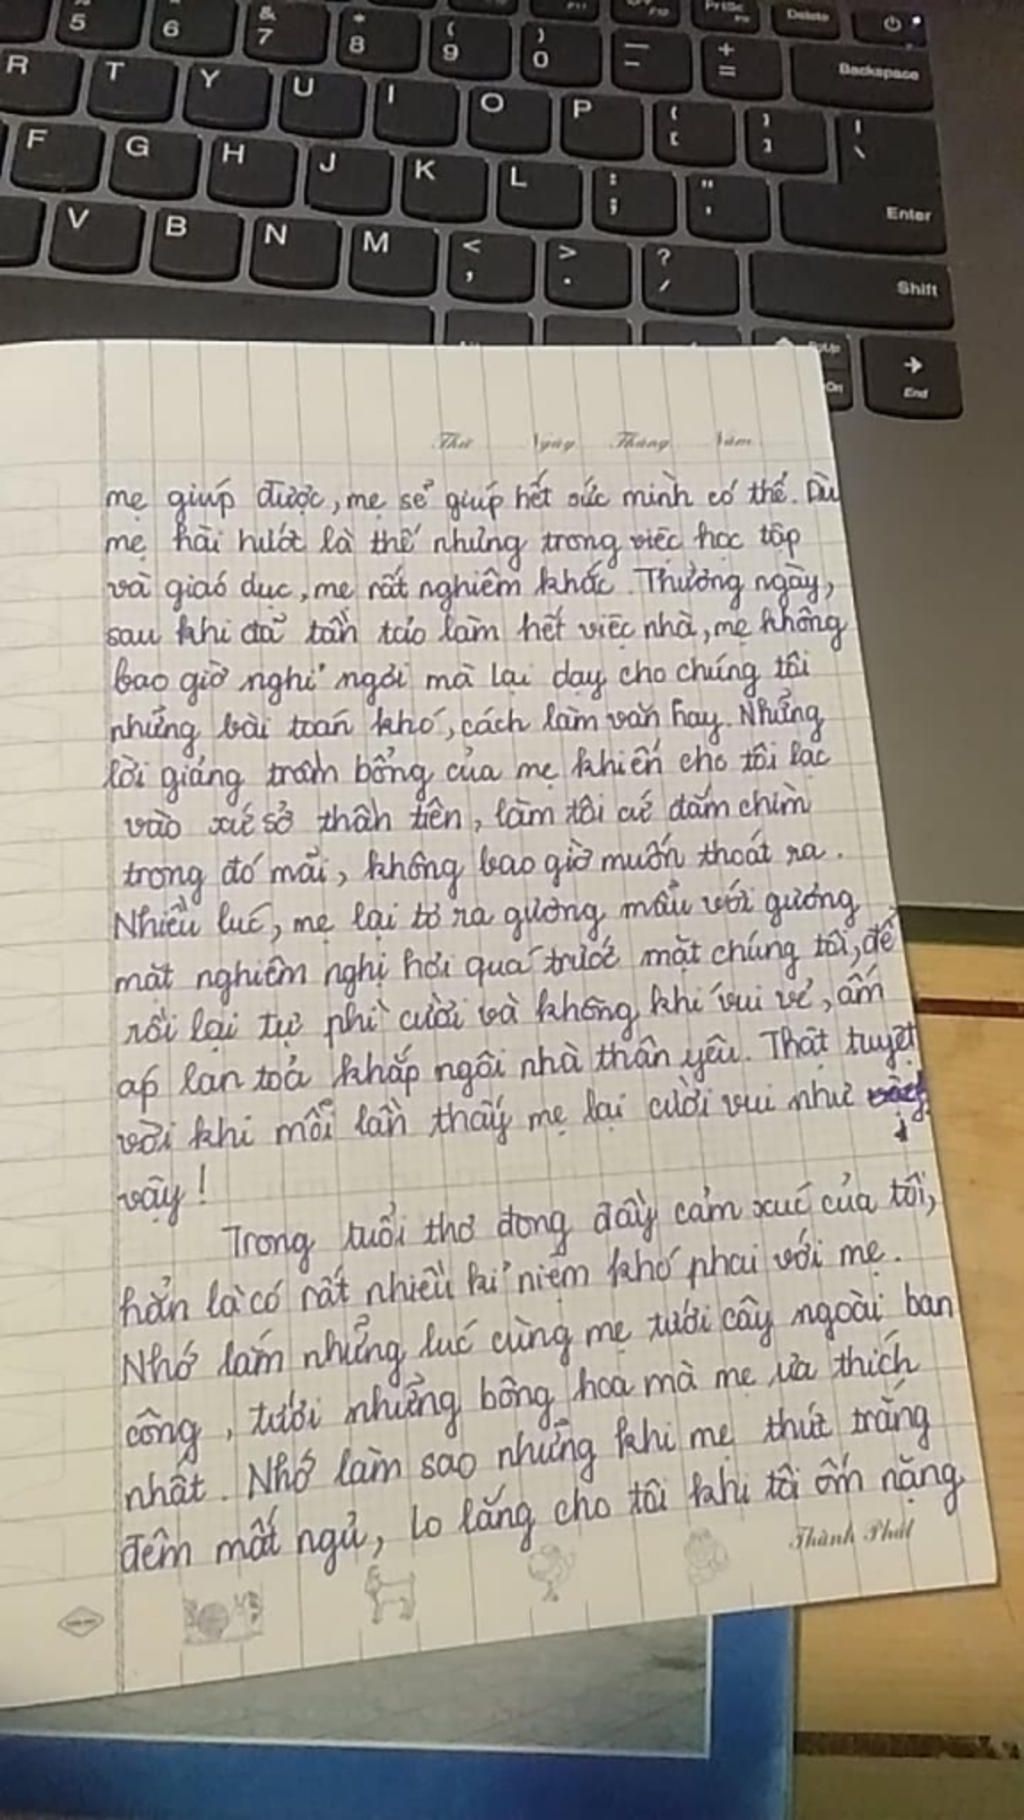 5 6 & 7 * 8 ( 9 ) 0 — - + = Backspace
PrtSc Delete
R T Y U I O P { [ } ] | \
F G H J K L : ; " ' Enter
V B N M < , > . ? / Shift
PgUp
On → End
Thứ Ngày Tháng Năm
mẹ giúp được, mẹ sẽ giúp hết sức mình có thể. Dù
mẹ hài hước là thế nhưng trong việc học tập
và giáo dục, mẹ rất nghiêm khắc. Thường ngày,
sau khi đã tần tảo làm hết việc nhà, mẹ không
bao giờ nghỉ ngơi mà lại dạy cho chúng tôi
những bài toán khó, cách làm văn hay. Những
lời giảng trầm bổng của mẹ khiến cho tôi lạc
vào xứ sở thần tiên, làm tôi cứ đắm chìm
trong đó mãi, không bao giờ muốn thoát ra.
Nhiều lúc, mẹ lại tỏ ra gương mẫu với gương
mặt nghiêm nghị hơi quá trước mặt chúng tôi, để
rồi lại tự phì cười và không khí vui vẻ, ấm
áp lan toả khắp ngôi nhà thân yêu. Thật tuyệt
vời khi mỗi lần thấy mẹ lại cười vui như
vậy!
Trong tuổi thơ đong đầy cảm xúc của tôi,
hẳn là có rất nhiều kỉ niệm khó phai với mẹ.
Nhớ lắm những lúc cùng mẹ tưới cây ngoài ban
công, tưới những bông hoa mà mẹ ưa thích
nhất. Nhớ làm sao những khi mẹ thức trắng
đêm mất ngủ, lo lắng cho tôi khi tôi ốm nặng
Thành Phát